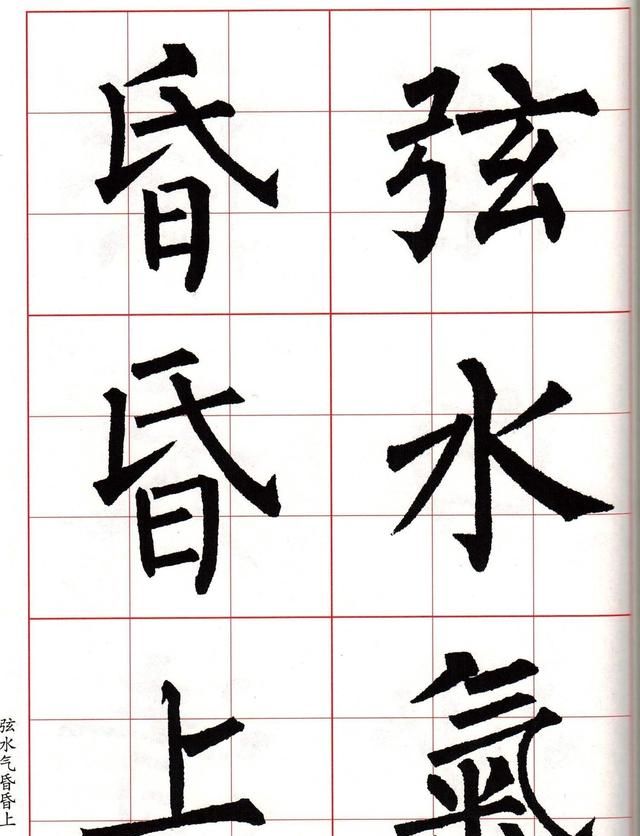 弦水氣
昏昏上
弦水气昏昏上